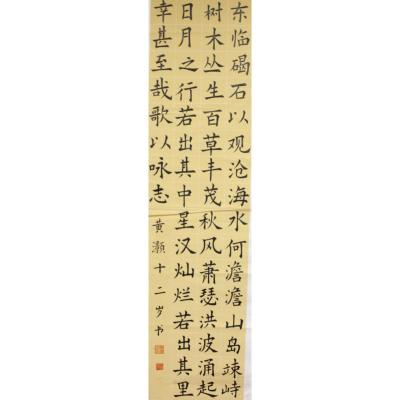 东临碣石以观沧海水何澹澹山岛竦峙
树木丛生百草丰茂秋风萧瑟洪波涌起
日月之行若出其中星汉灿烂若出其里
幸甚至哉歌以咏志
黄灏十二岁书